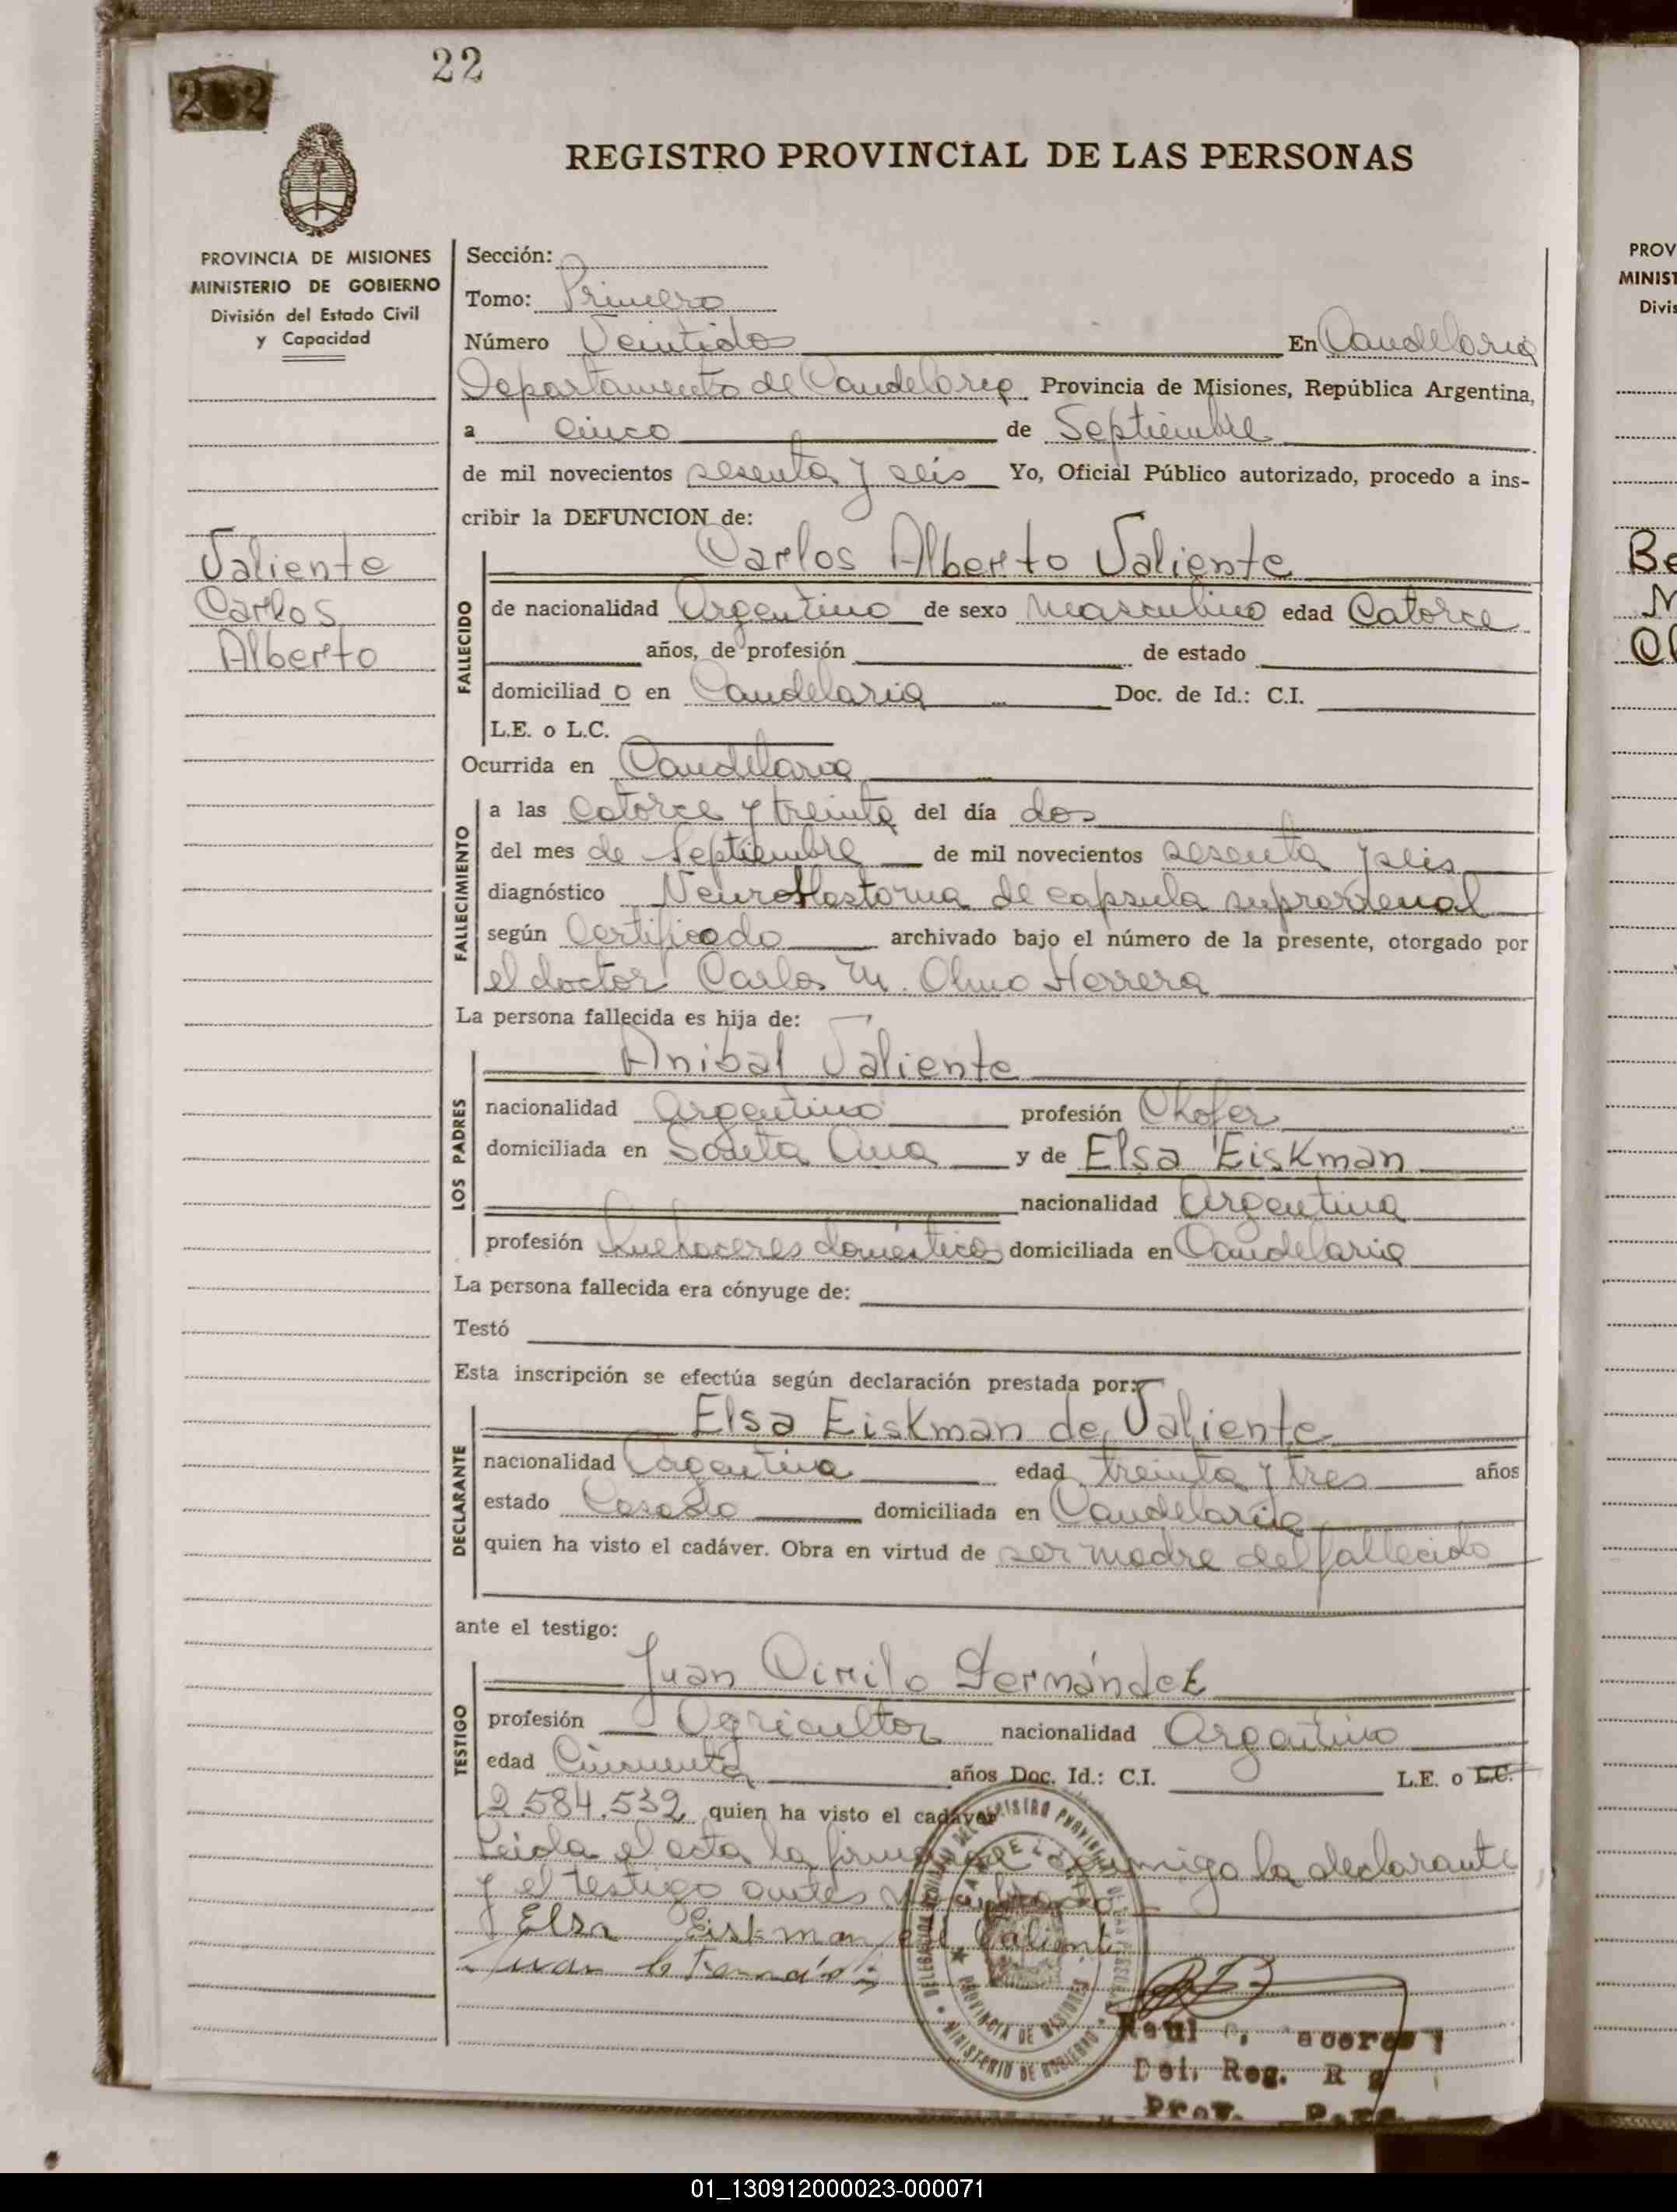 22
REGISTRO PROVINCIAL DE LAS PERSONAS
PROVINCIA DE MISIONES
MINISTERIO DE GOBIERNO
División del Estado Civil
y Capacidad
Valiente
Carlos
Alberto
Sección:
Tomo: Primero
Número Veintidos En Candelaria
Departamento de Candelaria Provincia de Misiones, República Argentina,
a cinco de Septiembre
de mil novecientos sesenta y seis Yo, Oficial Público autorizado, procedo a ins-
cribir la DEFUNCION de:
Carlos Alberto Valiente
FALLECIDO
de nacionalidad Argentino de sexo masculino edad Catorce
años, de profesión de estado
domiciliad o en Candelaria Doc. de Id.: C.I.
L.E. o L.C.
Ocurrida en Candelaria
FALLECIMIENTO
a las catorce y treinta del día dos
del mes de Septiembre de mil novecientos sesenta y seis
diagnóstico Neuroblastoma de capsula suprarrenal
según Certificado archivado bajo el número de la presente, otorgado por
el doctor Carlos M. Olmo Herrera
La persona fallecida es hija de:
LOS PADRES
Anibal Valiente
nacionalidad argentino profesión Chofer
domiciliada en Santa Ana y de Elsa Eiskman
nacionalidad Argentina
profesión Quehaceres domésticos domiciliada en Candelaria
La persona fallecida era cónyuge de:
Testó
Esta inscripción se efectúa según declaración prestada por:
DECLARANTE
Elsa Eiskman de Valiente
nacionalidad Argentina edad treinta y tres años
estado Casada domiciliada en Candelaria
quien ha visto el cadáver. Obra en virtud de ser madre del fallecido
ante el testigo:
TESTIGO
Juan Cirilo Fernández
profesión Agricultor nacionalidad Argentino
edad Cincuenta años Doc. Id.: C.I. L.E. o L.C.
2.584.532 quien ha visto el cadáver
Leida el acta la firman conmigo la declarante
y el testigo antes
Elsa Eiskman de Valiente
Juan C Fernández
PROVINCIA DE MISIONES
MINISTERIO DE GOBIERNO
Raul
Del. Reg.
Prov. Pers.
PROV
MINIST
Divis
Be
01_130912000023-000071